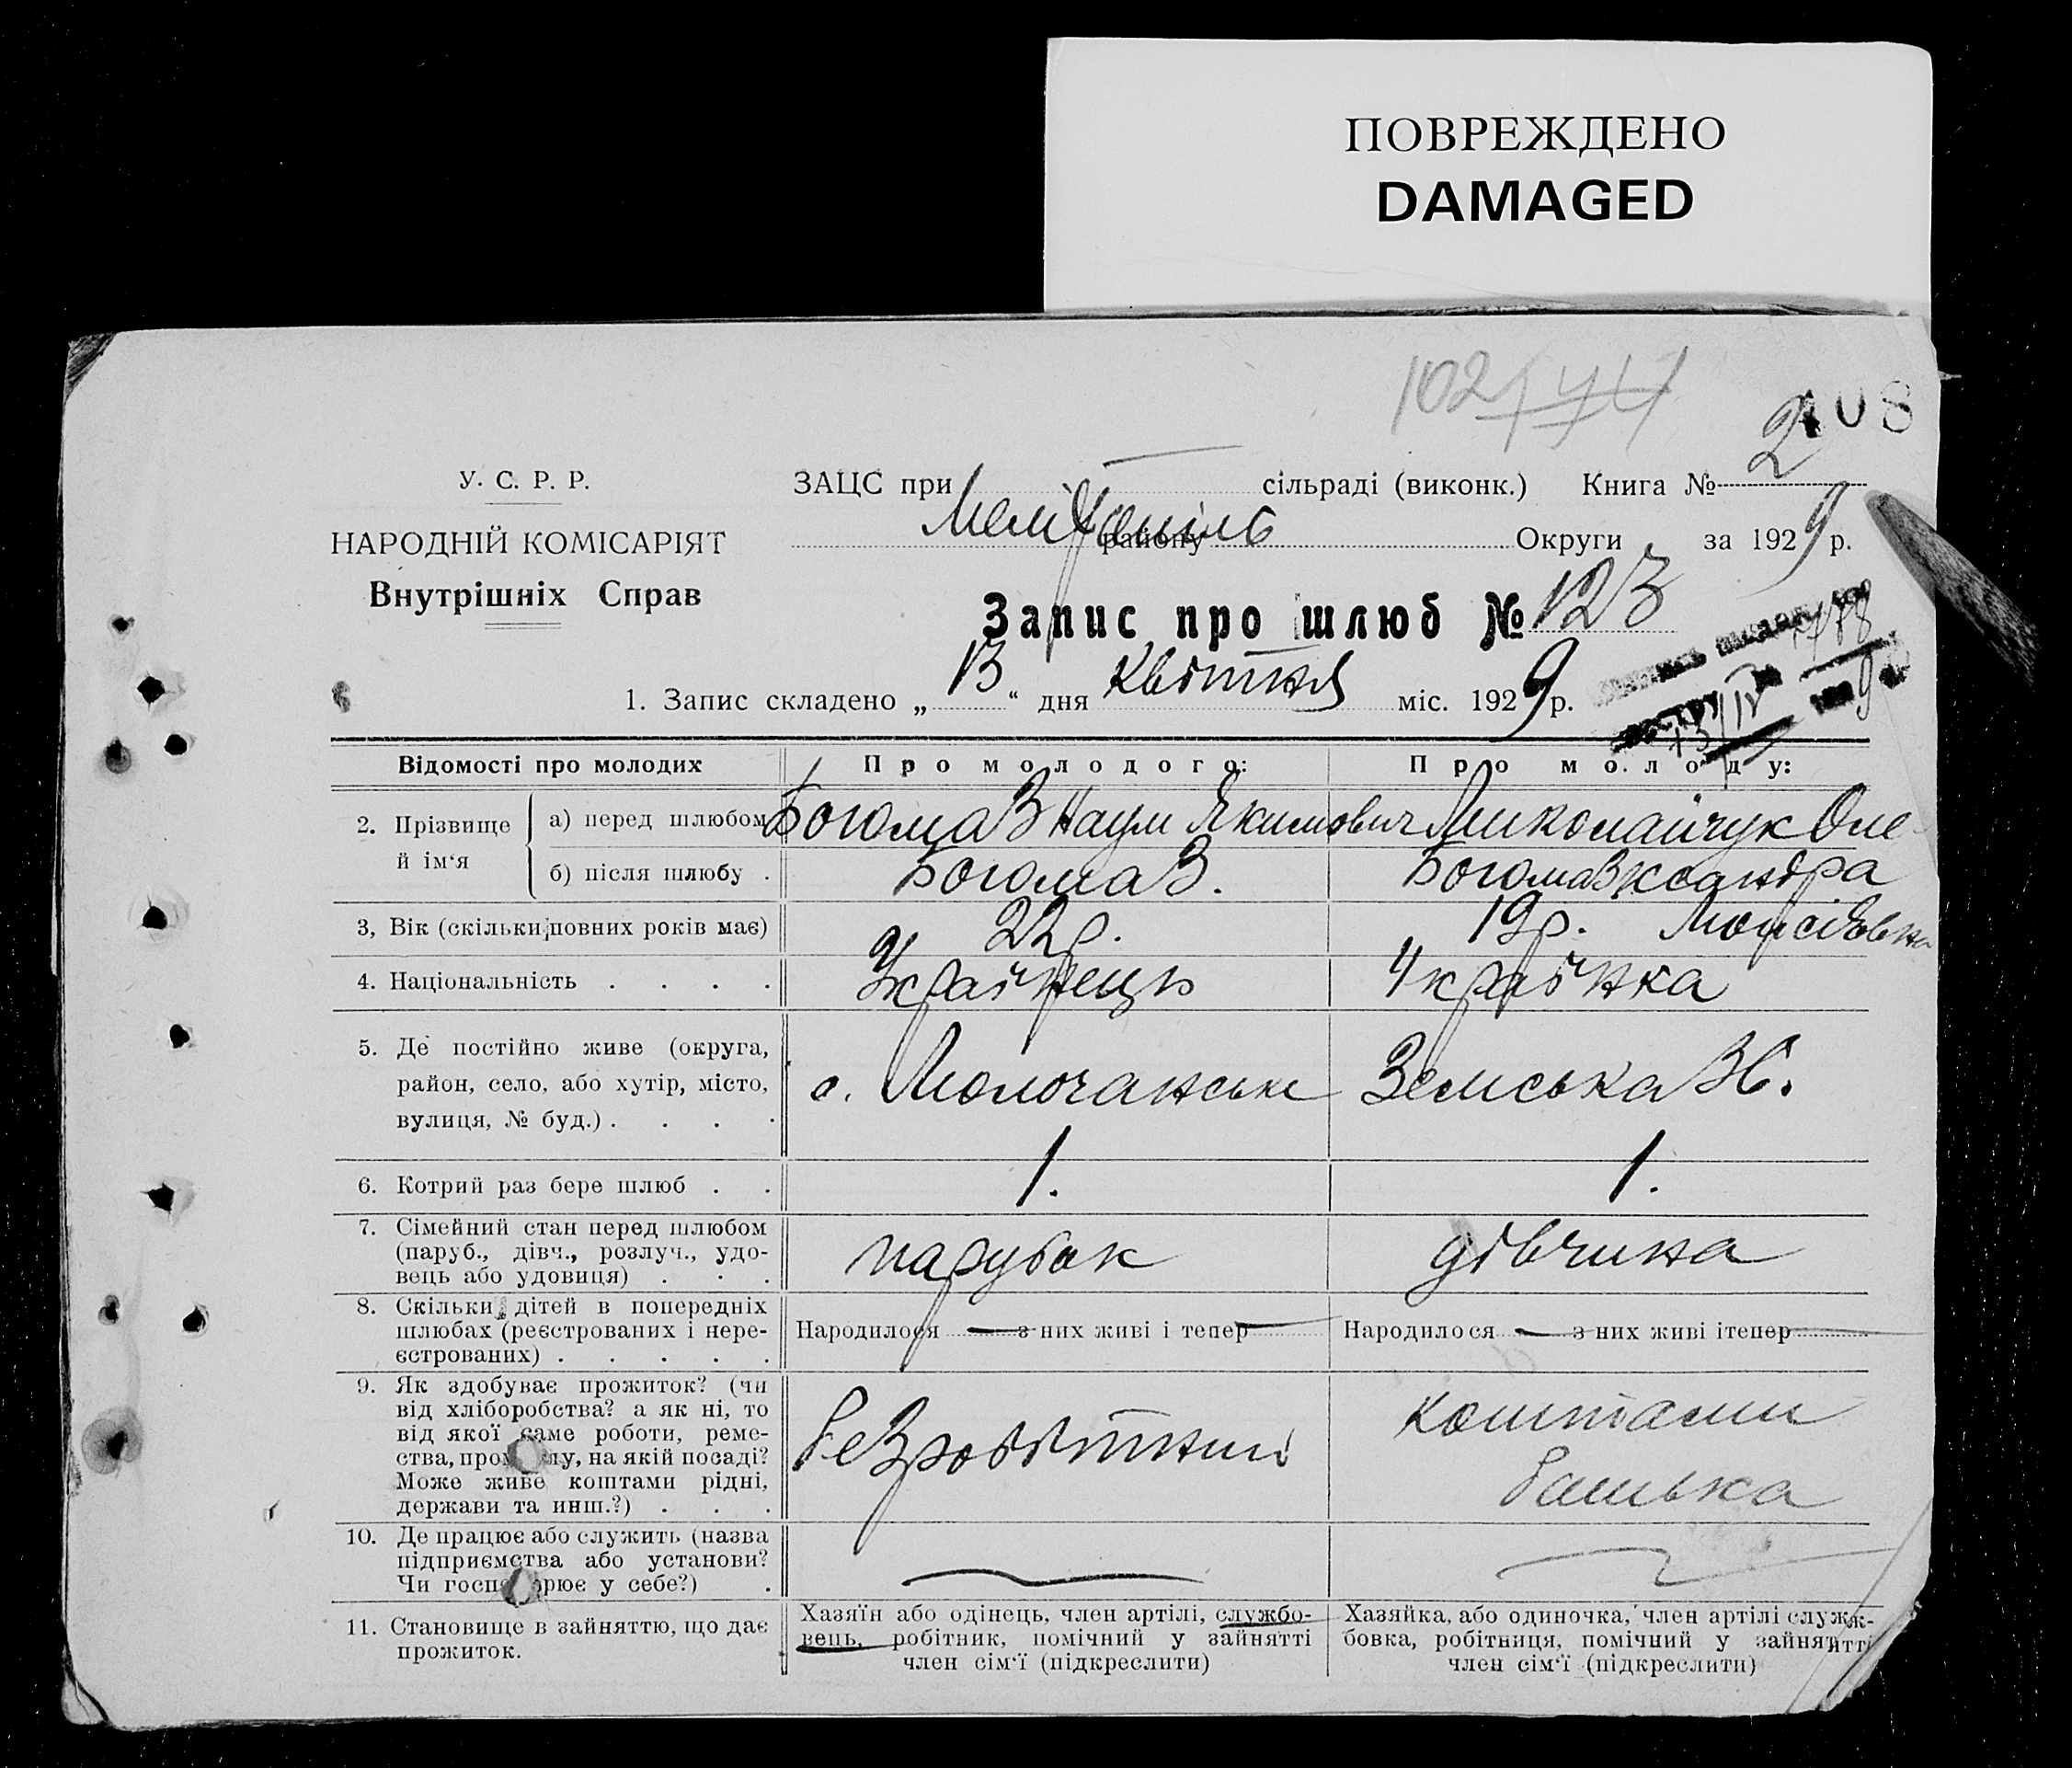 ПОВРЕЖДЕНО
DAMAGED
102
408
У. С. Р. Р.
НАРОДНІЙ КОМІСАРІЯТ
Внутрішніх Справ
ЗАЦС при Мелітопіль сільраді (виконк.) Книга № 2
району Округи за 1929 р.
Запис про шлюб № 123
1. Запис складено „ 13 “ дня квітня міс. 1929 р.
Відомості про молодих
Про молодого:
Про молоду:
2. Прізвище й ім‘я
а) перед шлюбом
Богомаз Наум Якимович
Миколайчук Оле
б) після шлюбу .
Богомаз.
Богомаз ксандра
3, Вік (скільки повних років має)
22 р.
19 р. Мойсіївна
4. Національність . . . .
Українець
Українка
5. Де постійно живе (округа,
район, село, або хутір, місто,
вулиця, № буд.) . . . .
с. Молочанське
Земська 36.
6. Котрий раз бере шлюб . .
1.
1.
7. Сімейний стан перед шлюбом
(паруб., дівч., розлуч., удо-
вець або удовиця) . . .
парубок
дівчина
8. Скільки дітей в попередніх
шлюбах (реєстрованих і нере-
єстрованих) . . . . .
Народилося — з них живі і тепер —
Народилося — з них живі ітепер —
9. Як здобуває прожиток? (чи
від хліборобства? а як ні, то
від якої саме роботи, реме-
ства, промислу, на якій посаді?
Може живе коштами рідні,
держави та инш.?) . . .
безробітний
коштами
батька
10. Де працює або служить (назва
підприємства або установи?
Чи господорює у себе?) .
11. Становище в зайняттю, що дає
прожиток.
Хазяїн або одінець, член артілі, службо-
вець, робітник, помічний у зайнятті
член сім‘ї (підкреслити)
Хазяйка, або одиночка, член артілі служ-
бовка, робітниця, помічний у зайнятті
член сім‘ї (підкреслити)